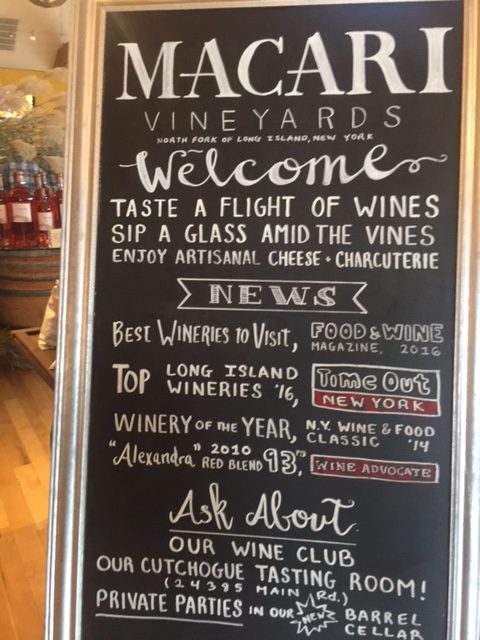 MACARI
VINEYARDS
NORTH FORK OF LONG ISLAND, NEW YORK
Welcome
TASTE A FLIGHT OF WINES
SIP A GLASS AMID THE VINES
ENJOY ARTISANAL CHEESE + CHARCUTERIE
NEWS
BEST WINERIES TO VISIT, FOOD & WINE
MAGAZINE, 2016
TOP LONG ISLAND
WINERIES '16, Time Out
NEW YORK
WINERY OF THE YEAR, N.Y. WINE & FOOD
CLASSIC '14
"Alexandra" 2010
RED BLEND 93", WINE ADVOCATE
Ask About
OUR WINE CLUB
OUR CUTCHOGUE TASTING ROOM!
(24385 MAIN Rd.)
PRIVATE PARTIES IN OUR NEW BARREL
CELLAR